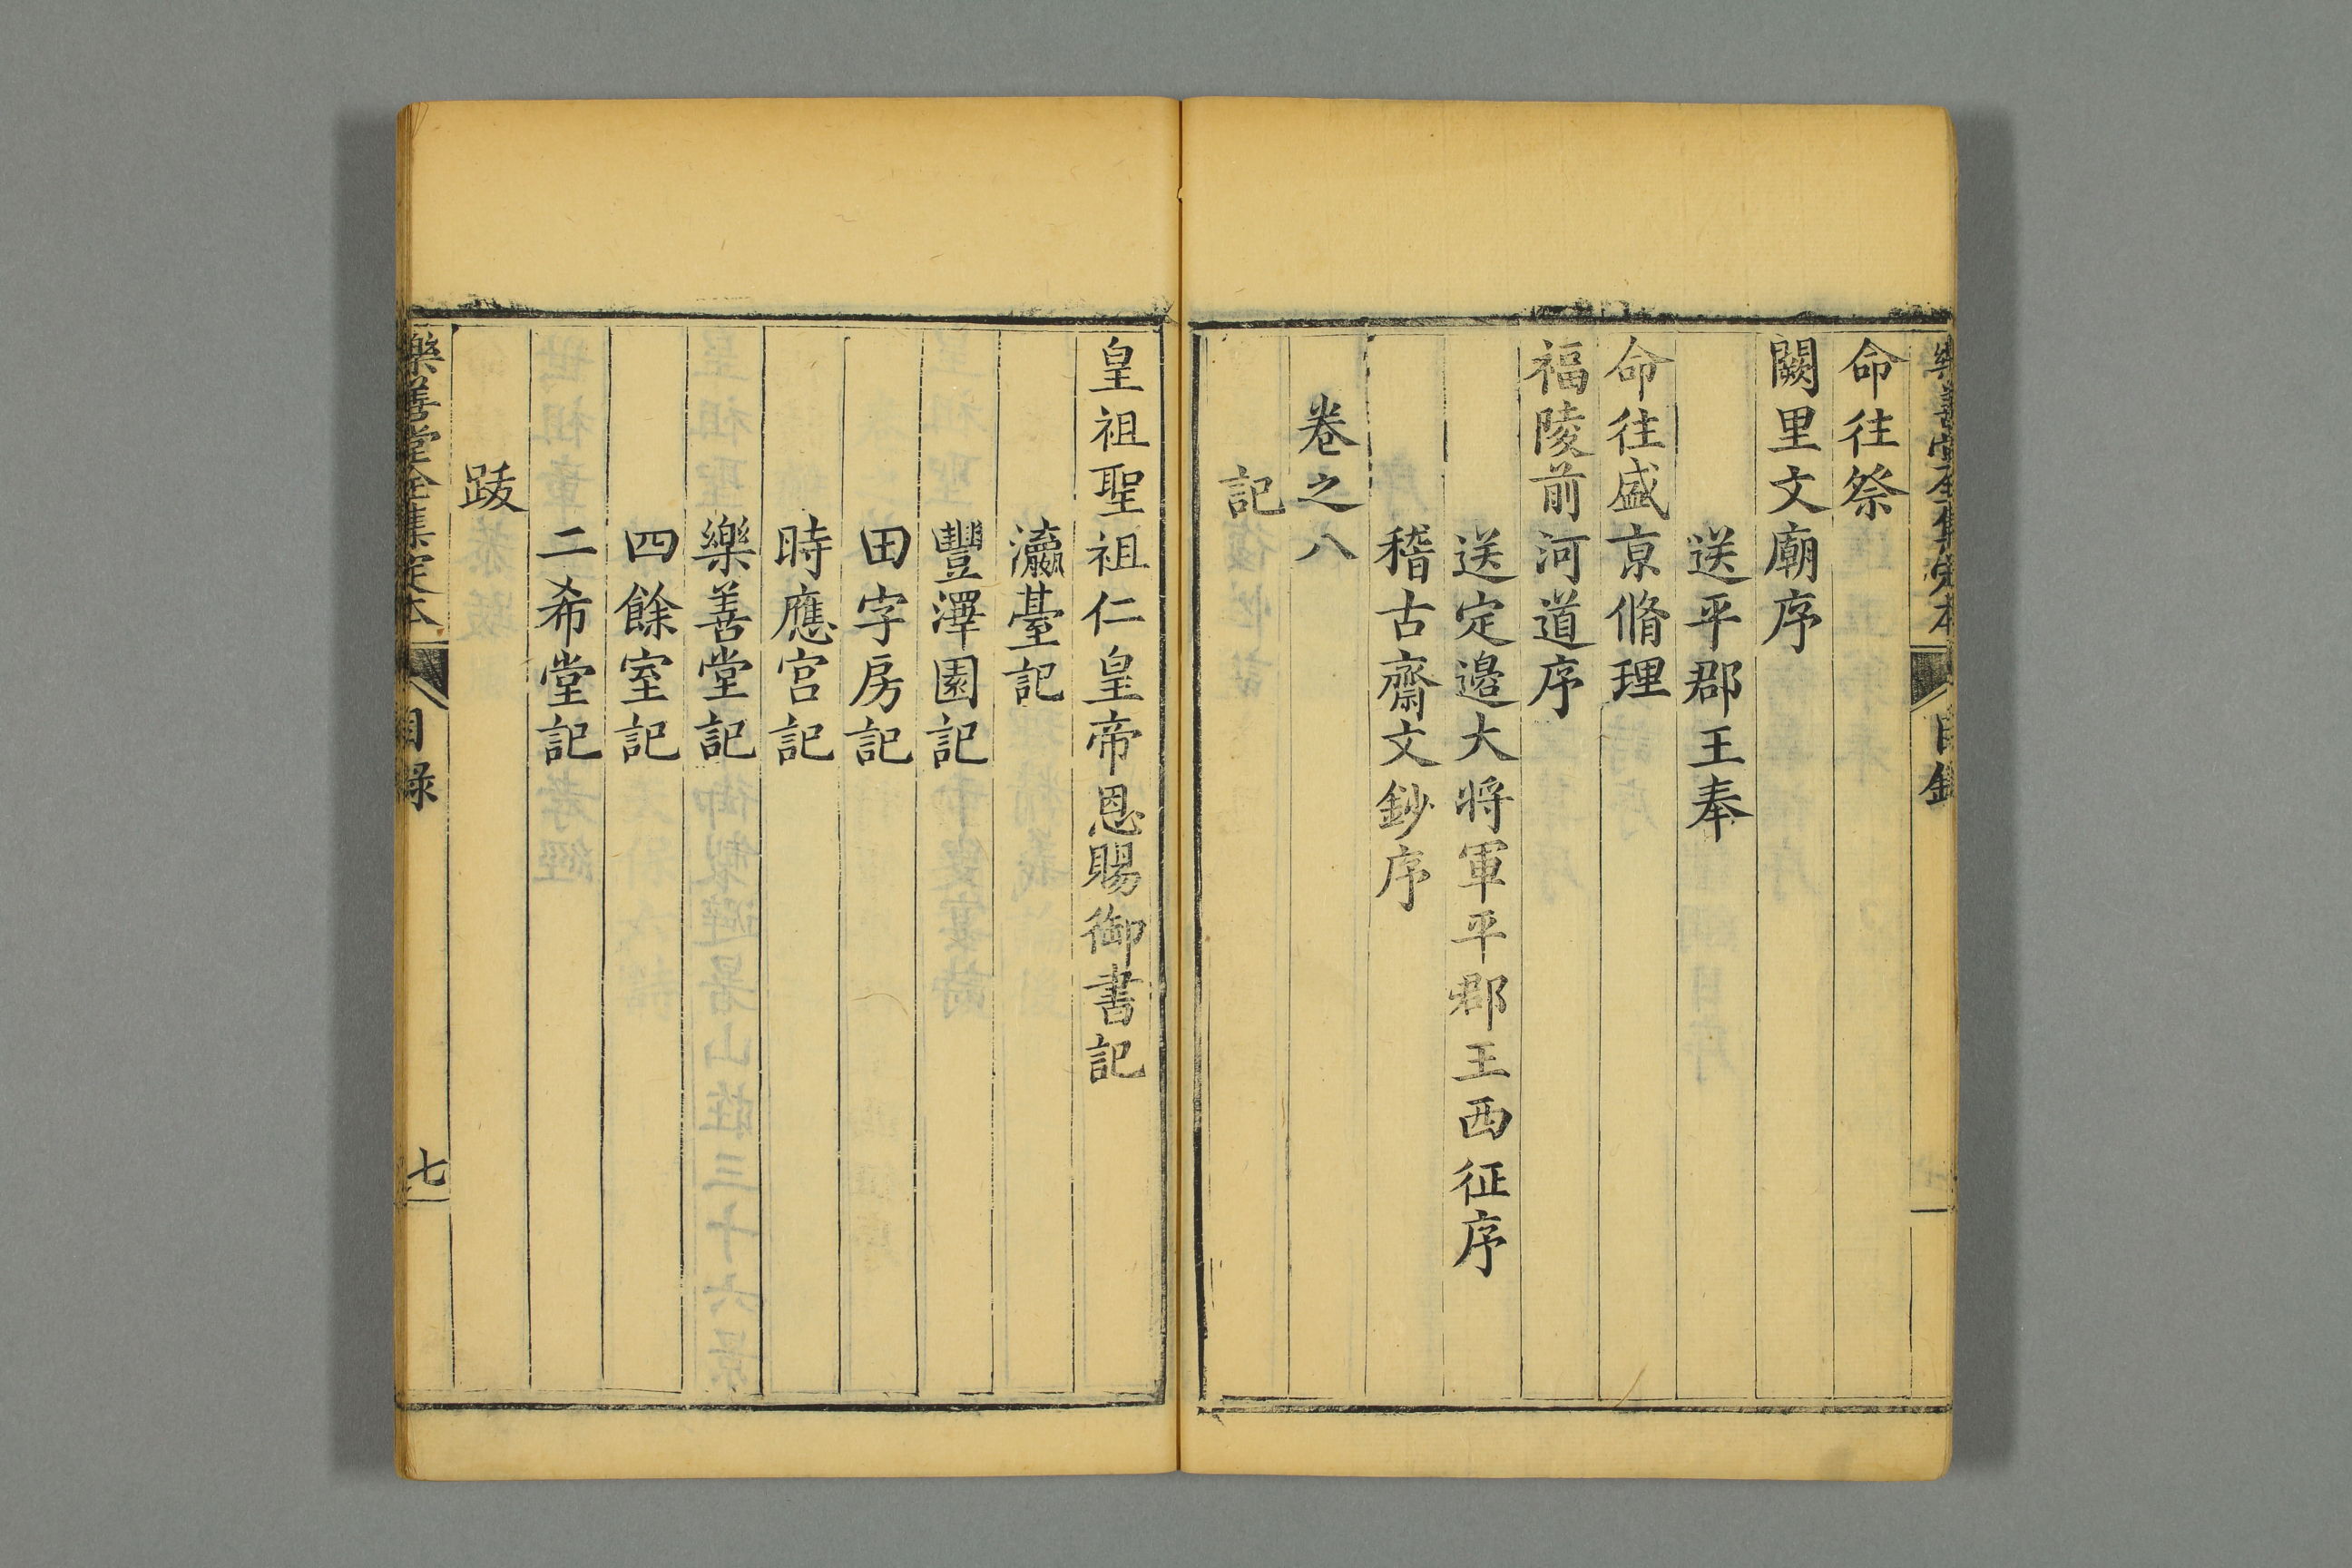 命往祭
闕里文廟序
送平郡王奉
命往盛京脩理
福陵前河道序
送定邊大將軍平郡王西征序
稽古齋文鈔序
卷之八
記
皇祖聖祖仁皇帝恩賜御書記
瀛臺記
豐澤園記
田字房記
時應宮記
樂善堂記
四餘室記
二希堂記
跋
樂善堂全集定本
目錄
七